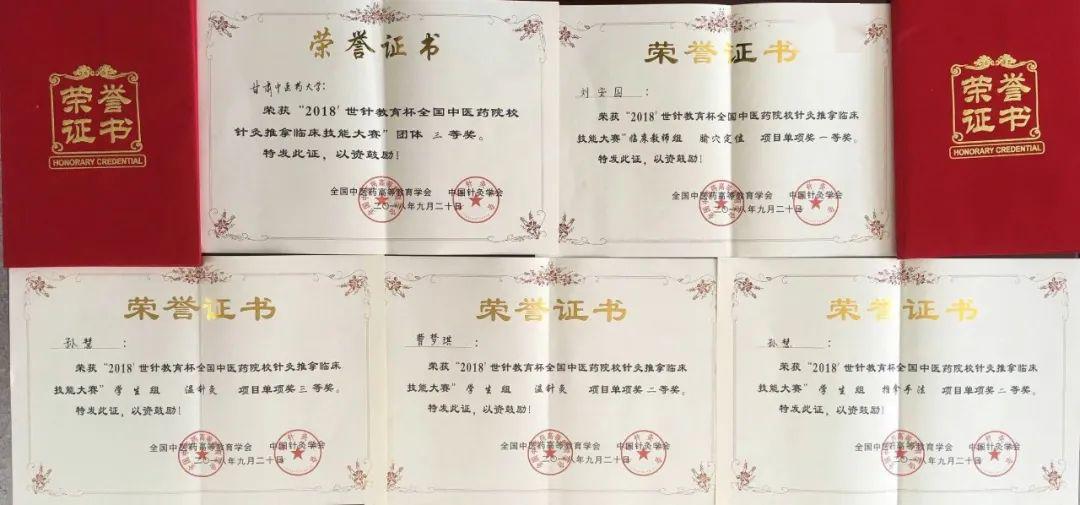 荣誉
证书
HONORARY CREDENTIAL
荣誉证书
甘肃中医药大学：
荣获“2018'世针教育杯全国中医药院校
针灸推拿临床技能大赛”团体 三 等奖。
特发此证，以资鼓励！
全国中医药高等教育学会 中国针灸学会
二〇一八年九月二十日
荣誉证书
刘安国：
荣获“2018'世针教育杯全国中医药院校针灸推拿临床
技能大赛”临床教师组 腧穴定位 项目单项奖一等奖。
特发此证，以资鼓励！
全国中医药高等教育学会 中国针灸学会
二〇一八年九月二十日
荣誉
证书
HONORARY CREDENTIAL
荣誉证书
孙慧：
荣获“2018'世针教育杯全国中医药院校针灸推拿临床
技能大赛”学生组 温针灸 项目单项奖三等奖。
特发此证，以资鼓励！
全国中医药高等教育学会 中国针灸学会
二〇一八年九月二十日
荣誉证书
曹梦琪：
荣获“2018'世针教育杯全国中医药院校针灸推拿临床
技能大赛”学生组 温针灸 项目单项奖二等奖。
特发此证，以资鼓励！
全国中医药高等教育学会 中国针灸学会
二〇一八年九月二十日
荣誉证书
孙慧：
荣获“2018'世针教育杯全国中医药院校针灸推拿临床
技能大赛”学生组 推拿手法 项目单项奖二等奖。
特发此证，以资鼓励！
全国中医药高等教育学会 中国针灸学会
二〇一八年九月二十日